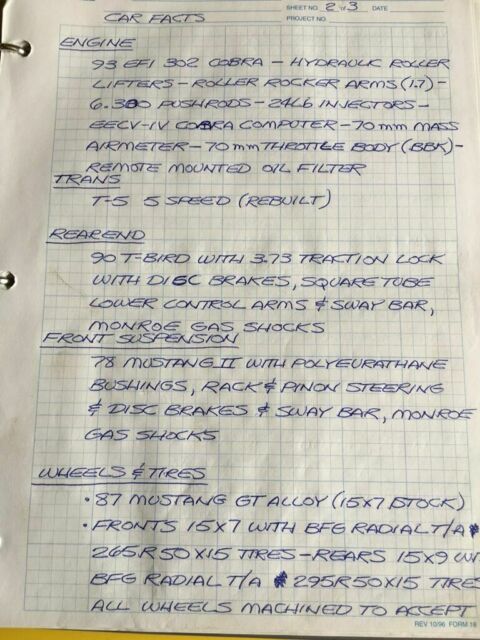 SHEET NO. 2 of 3 DATE
CAR FACTS
PROJECT NO.
ENGINE
93 EFI 302 COBRA - HYDRAULIC ROLLER
LIFTERS - ROLLER ROCKER ARMS (1.7) -
6.300 PUSHRODS - 24LB INJECTORS -
EECV-IV COBRA COMPUTER - 70 mm MASS
AIRMETER - 70 mm THROTTLE BODY (BBK) -
REMOTE MOUNTED OIL FILTER
TRANS
T-5 5 SPEED (REBUILT)
REAREND
90 T-BIRD WITH 3.73 TRACTION LOCK
WITH DISC BRAKES, SQUARE TUBE
LOWER CONTROL ARMS & SWAY BAR,
MONROE GAS SHOCKS
FRONT SUSPENSION
78 MUSTANG II WITH POLYEURATHANE
BUSHINGS, RACK & PINON STEERING
& DISC BRAKES & SWAY BAR, MONROE
GAS SHOCKS
WHEELS & TIRES
• 87 MUSTANG GT ALLOY (15X7 STOCK)
• FRONTS 15X7 WITH BFG RADIAL T/A
265R50X15 TIRES - REARS 15X9 WI
BFG RADIAL T/A 295R50X15 TIRES
ALL WHEELS MACHINED TO ACCEPT
REV 10/96 FORM 18